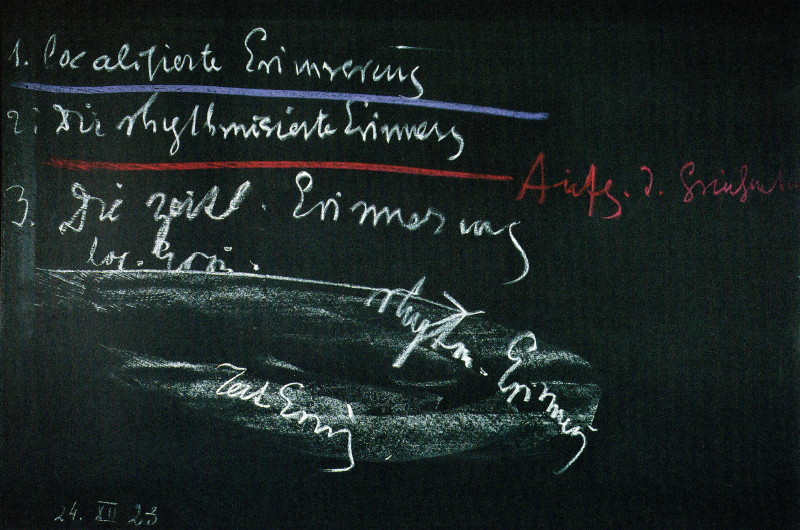 1. localisierte Erinnerung
2. Die rhythmisierte Erinnerg
Aufg. d. Griechen
3. Die zeitl. Erinnerung
loc. Erin.
rhythm. Erinnerg
Zeit Erin̄g
24. XII 23